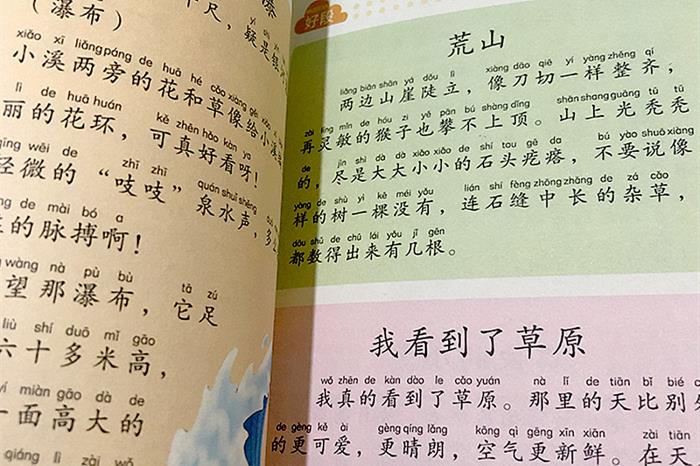 （瀑布）
尺，疑是银
xiǎo xī liǎng páng de huā hé cǎo xiàng gěi xiǎo
小溪两旁的花和草像给小溪
de huā huán kě zhēn hǎo kàn ya
丽的花环，可真好看呀！
qīng wēi de zhī zhī quán shuǐ shēng
轻微的“吱吱”泉水声，多么
de mài bó a
的脉搏啊！
wàng nà pù bù tā zú
望那瀑布，它足
liù shí duō mǐ gāo
六十多米高，
yí miàn gāo dà de
一面高大的
qiáng lǐ zài
好段
荒山
liǎng biān shān yá dǒu lì xiàng dāo qiē yí yàng zhěng qí
两边山崖陡立，像刀切一样整齐，
zài líng mǐn de hóu zi yě pān bú shàng dǐng shān shang guāng tū tū
再灵敏的猴子也攀不上顶。山上光秃秃
de jìn shì dà dà xiǎo xiǎo de shí tou gē da bú yào shuō xiàng
的，尽是大大小小的石头疙瘩，不要说像
yàng de shù yì kē méi yǒu lián shí fèng zhōng zhǎng de zá cǎo
样的树一棵没有，连石缝中长的杂草，
dōu shǔ de chū lái yǒu jǐ gēn
都数得出来有几根。
我看到了草原
wǒ zhēn de kàn dào le cǎo yuán nà lǐ de tiān bǐ bié
我真的看到了草原。那里的天比别处
de gèng kě ài gèng qíng lǎng kōng qì gèng xīn xiān zài tiān
的更可爱，更晴朗，空气更新鲜。在天